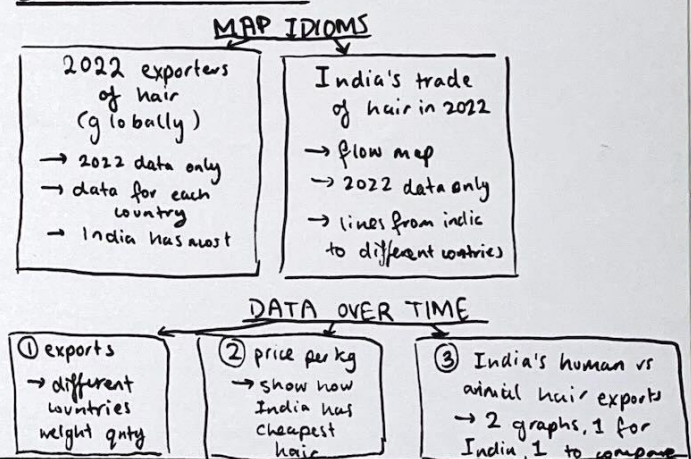 MAP IDIOMS
2022 exporters
of hair
(globally)
→ 2022 data only
→ data for each
country
→ India has most
India's trade
of hair in 2022
→ flow map
→ 2022 data only
→ lines from india
to different contries
DATA OVER TIME
① exports
→ different
countries
weight qnty
② price per kg
→ show how
India has
cheapest
hair
③ India's human vs
animal hair exports
→ 2 graphs, 1 for
India, 1 to compare